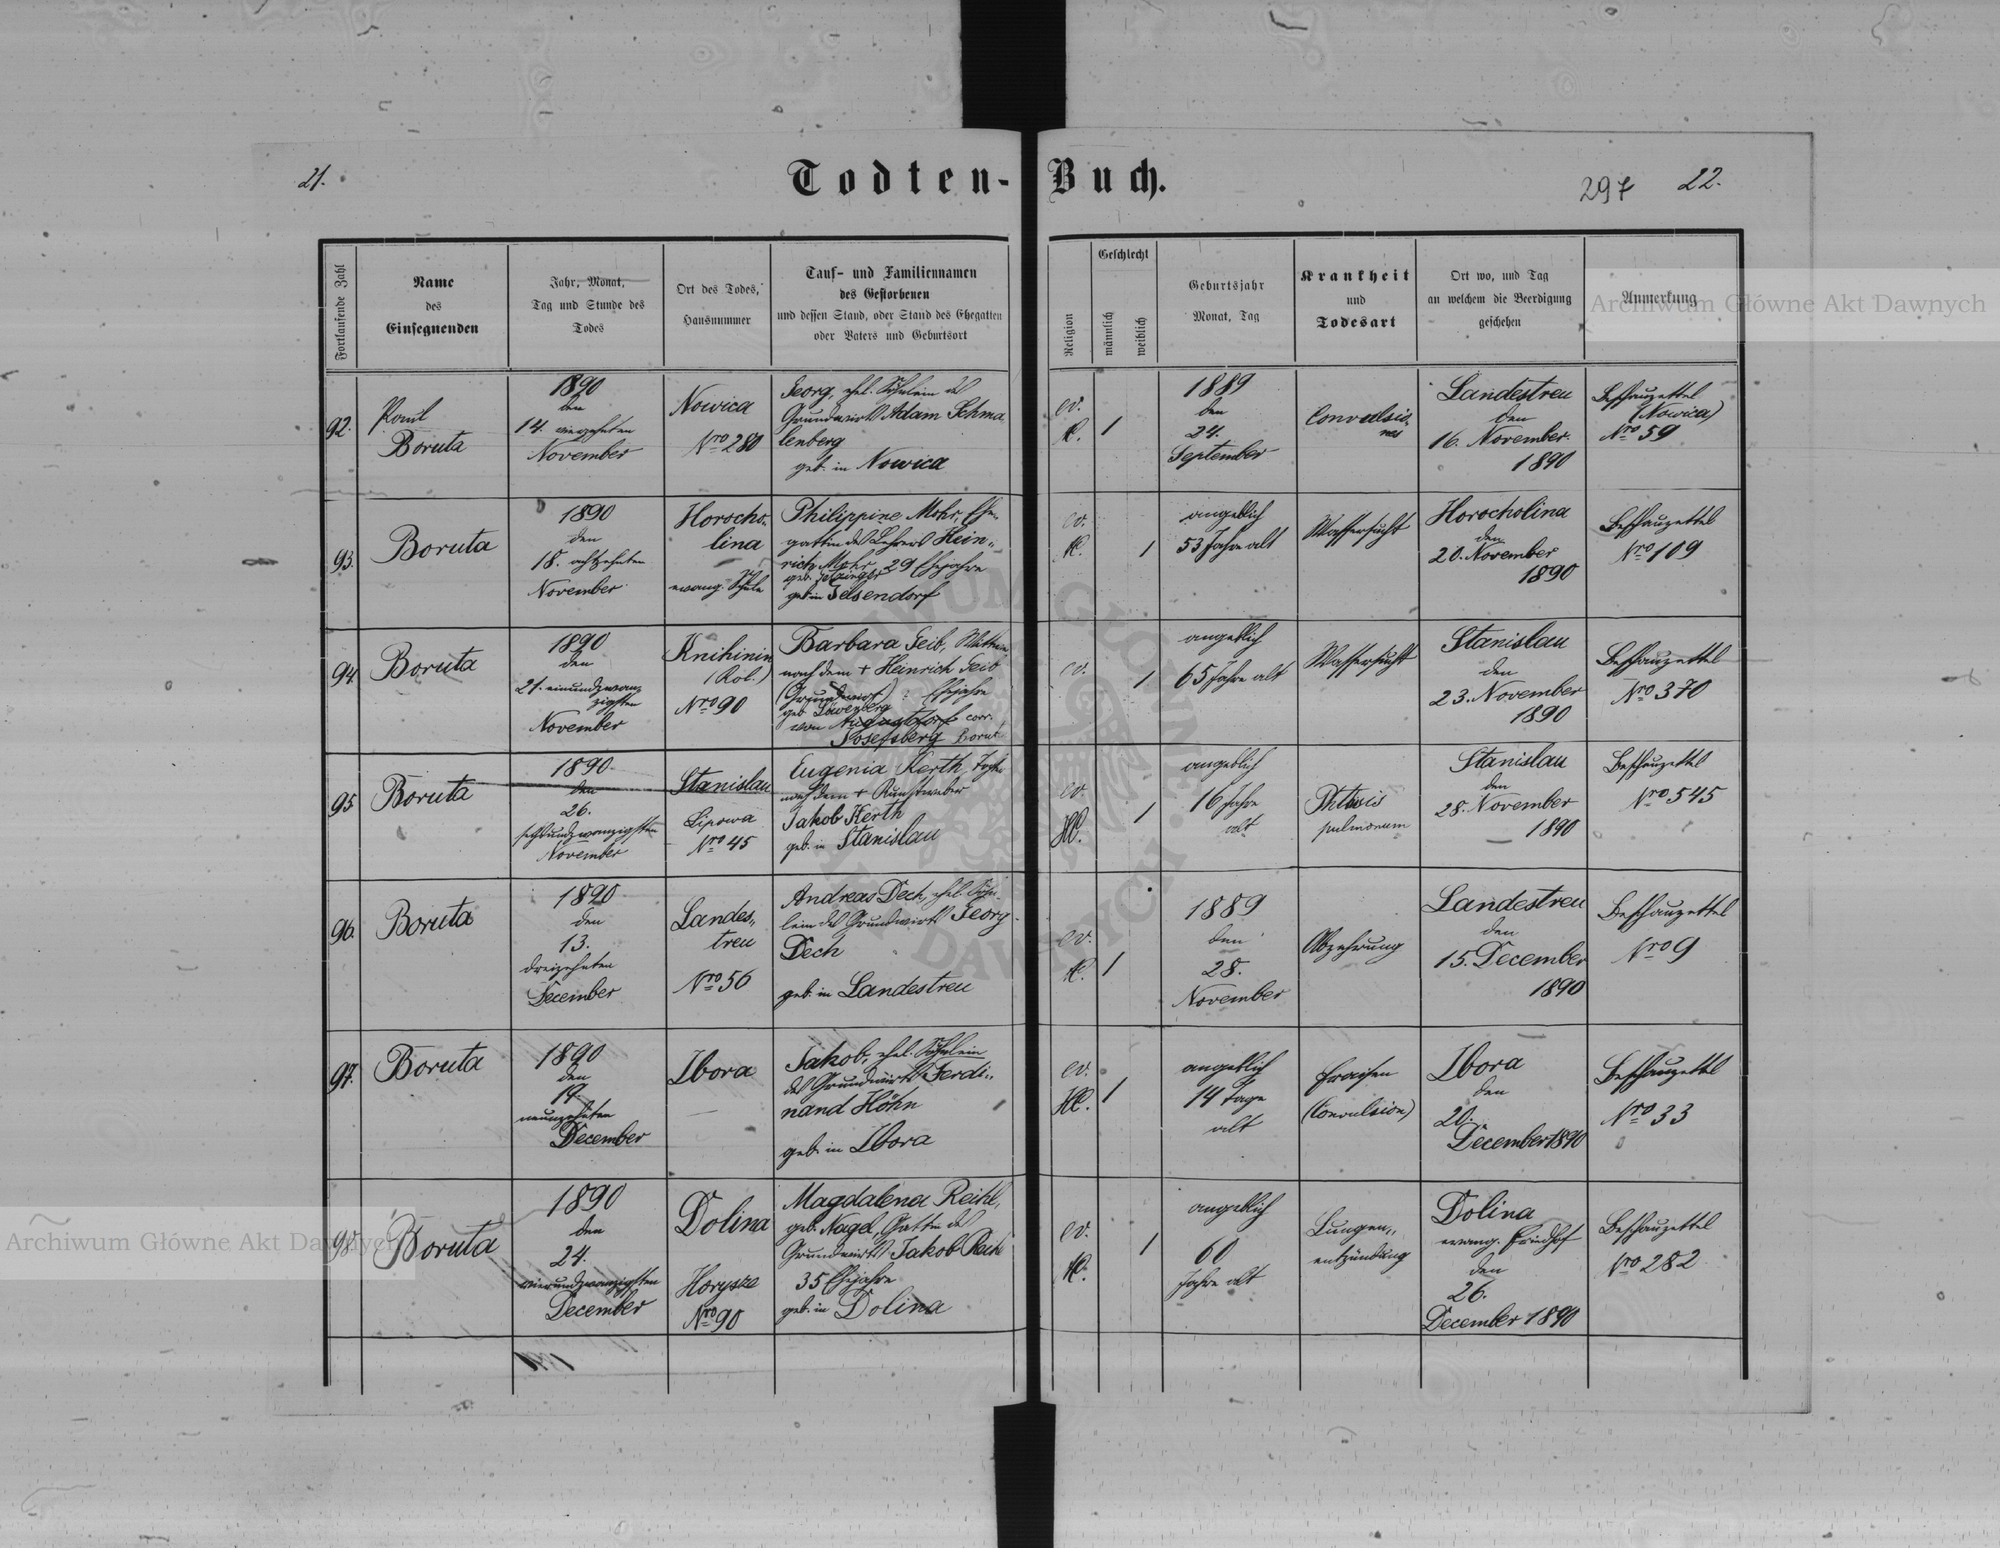 21.
Todten-Buch.
297
22.
Fortlaufende Zahl
Name
des
Einsegnenden
Jahr, Monat,
Tag und Stunde des
Todes
Ort des Todes,
Hausnummer
Tauf- und Familiennamen
des Gestorbenen
und dessen Stand, oder Stand des Ehegatten
oder Vaters und Geburtsort
Religion
Geschlecht
männlich
weiblich
Geburtsjahr
Monat, Tag
Krankheit
und
Todesart
Ort wo, und Tag
an welchem die Beerdigung
geschehen
Anmerkung
92.
Boruta
1890
den
14. vierzehnten
November
Nowica
Nro 280
Georg, ehel. Söhnlein des
Grundwirts Adam Schma
lenberg
geb. in Nowica
ev.
1
1889
den
24.
September
Convulsio-
nes
Landestreu
den
16. November
1890
Beschauzettel
(Nowica)
Nro 59
93.
Boruta
1890
den
18. achtzehnten
November
Horocho-
lina
evang. Schule
Philippine Mohr, Ehe-
gattin des Lehrers Hein-
rich Mohr, 29 Ehejahre
geb. in Gelsendorf
ev.
1
angeblich
53 Jahre alt
Wassersucht
Horocholina
den
20. November
1890
Beschauzettel
Nro 109
94.
Boruta
1890
den
21. einundzwan-
zigsten
November
Knihinin
(Kol.)
Nro 90
Barbara Geib, Wittwe
nach dem + Heinrich Geib
(Grundwirt) : Ehejahre
geb. Löwenberg
von Augustdorf corr.
Josefsberg Borut.
ev.
1
angeblich
65 Jahre alt
Wassersucht
Stanislau
den
23. November
1890
Beschauzettel
Nro 370
95
Boruta
1890
den
26.
sechsundzwanzigsten
November
Stanislau
Lipowa
Nro 45
Eugenia Kerth, Tocht.
nach dem + Kunstweber
Jakob Kerth
geb. in Stanislau
ev.
HC.
1
angeblich
16 Jahre
alt
Phtisis
pulmonum
Stanislau
den
28. November
1890
Beschauzettel
Nro 545
96.
Boruta
1890
den
13.
dreizehnten
December
Landes-
treu
Nro 56
Andreas Dech, ehel. Söhn-
lein des Grundwirts Georg
Dech
geb. in Landestreu
ev.
1
1889
den
28.
November
Abzehrung
Landestreu
den
15. December
1890
Beschauzettel
Nro 9
97.
Boruta
1890
den
19.
neunzehnten
December
Ibora
Jakob, ehel. Söhnlein
des Grundwirts Ferdi-
nand Höhn
geb. in Ibora
ev.
HC.
1
angeblich
14 Tage
alt
Fraisen
(Convulsion)
Ibora
den
20.
December 1890
Beschauzettel
Nro 33
98.
Boruta
1890
den
24.
vierundzwanzigsten
December
Dolina
Nro 90
Magdalena Reihl,
geb. Nagel, Gattin des
Grundwirts Jakob Reihl
35 Ehejahre
geb. in Dolina
ev.
1
angeblich
60
Jahre alt
Lungen-
entzündung
Dolina
evang. Friedhof
den
26.
December 1890
Beschauzettel
Nro 282
Archiwum Główne Akt Dawnych
Archiwum Główne Akt Dawnych